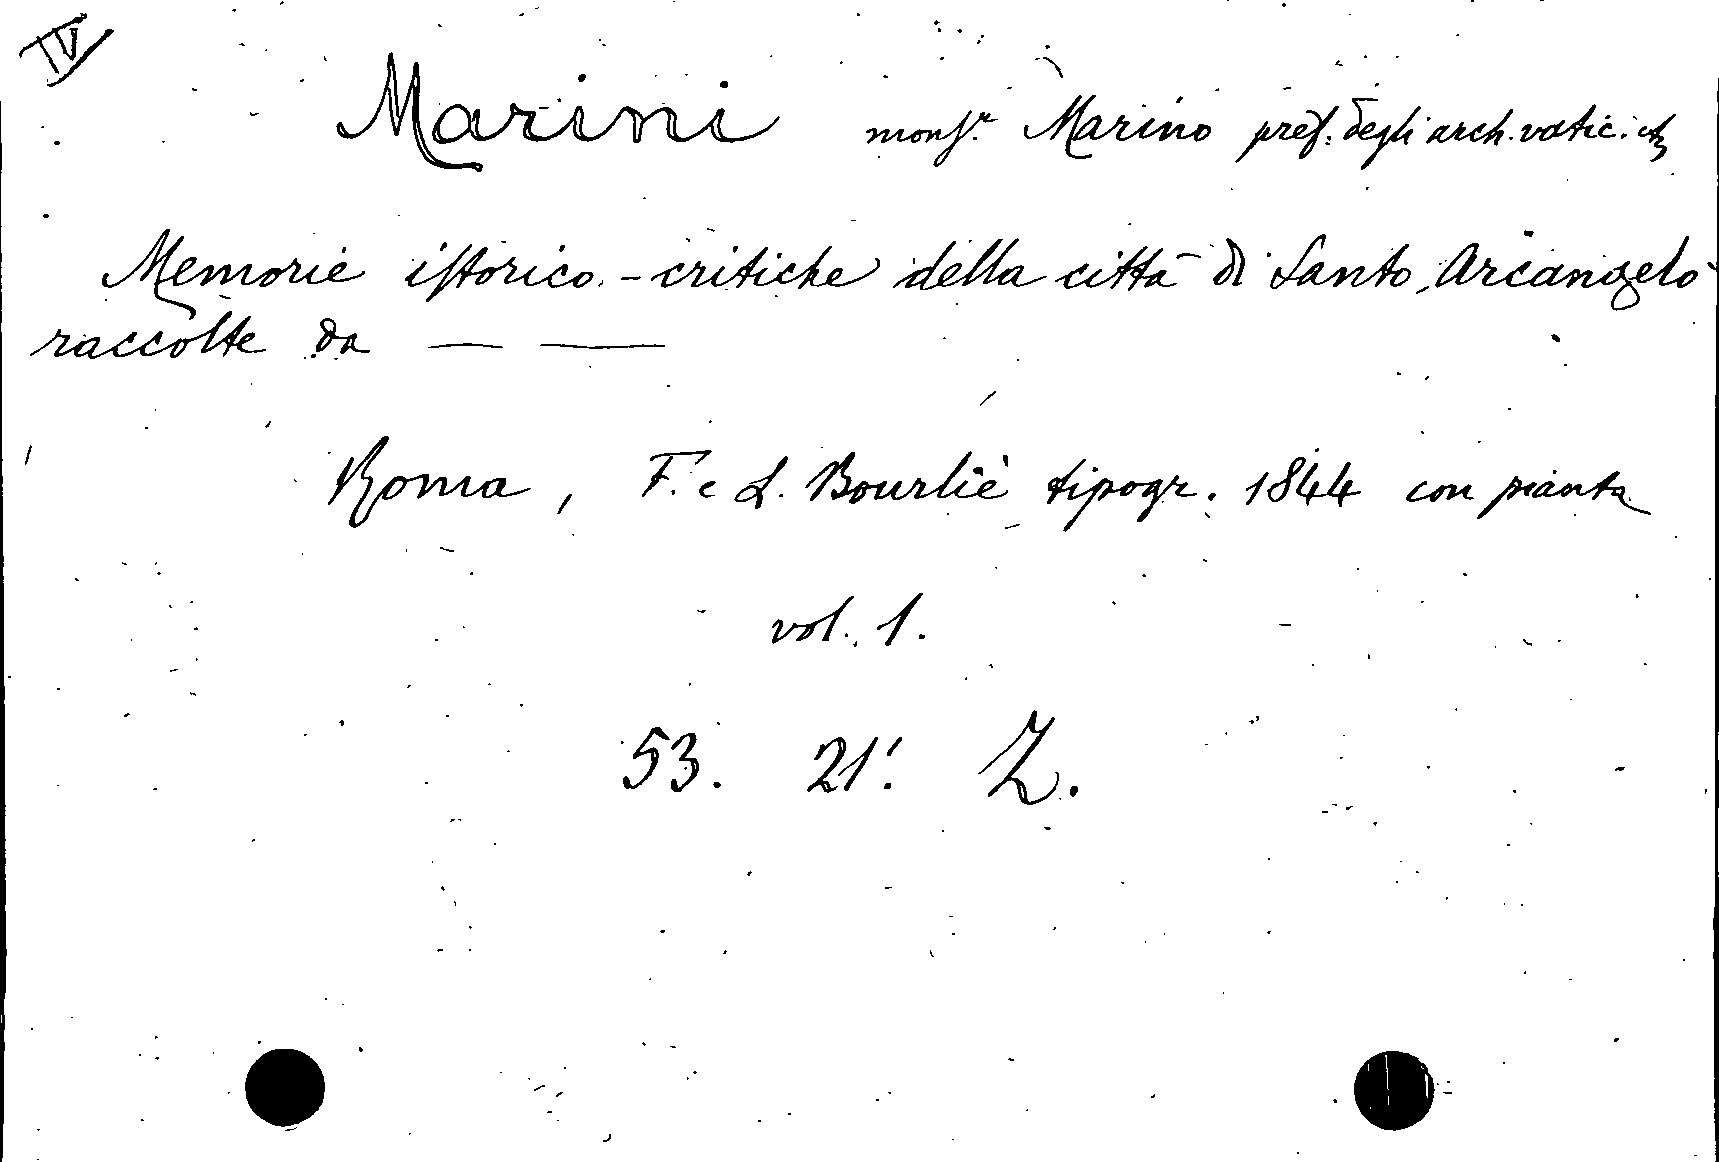 IV
Marini monsr. Marino pref. degli arch. vatic. etc
Memorie istorico-critiche della città di Santo Arcangelo
raccolte da — —
Roma, F. e L. Bourliè tipogr. 1844 con pianta
vol. 1.
53. 21. Z.